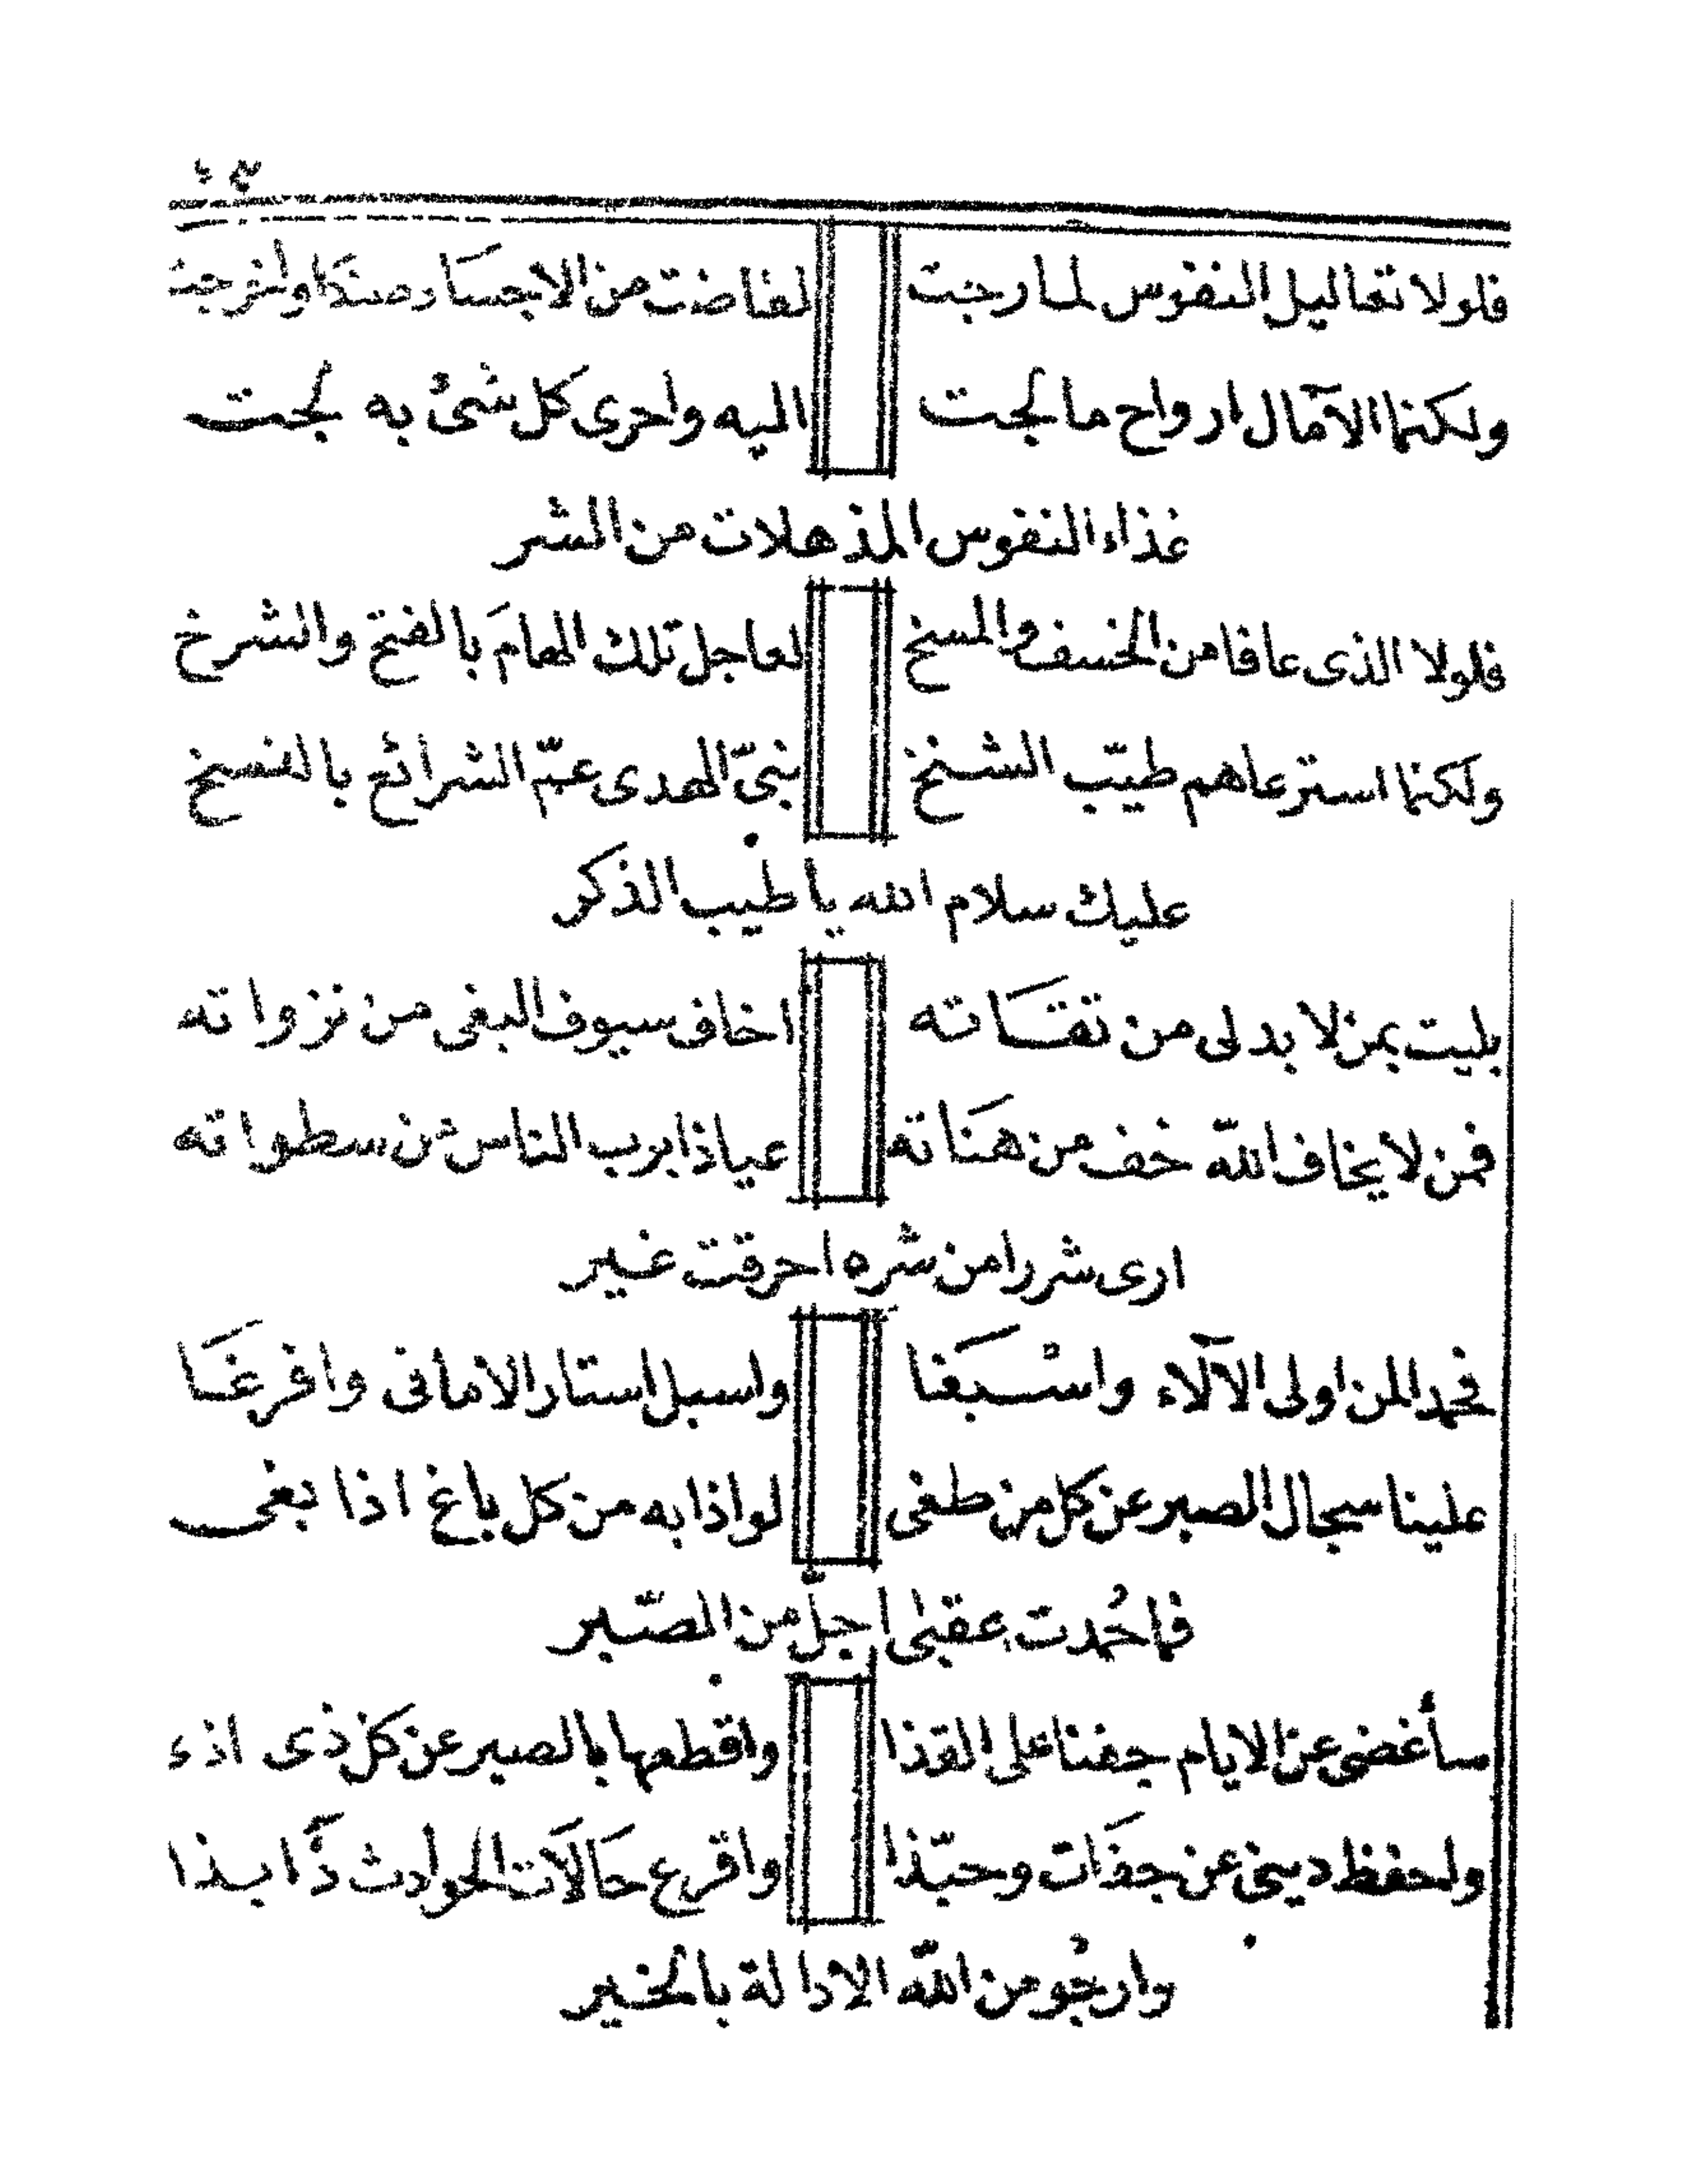 ٤٣
فلولا تعاليل النفوس لما رجت لفاضت من الاجساد صدا ولخرجت
ولكنما الآمال ارواح ما لجت اليه واحرى كل شئ به لجت
غذاء النفوس المذهلات من الشر
فلولا الذى عافا من الخسف والمسخ لعاجل تلك الهام بالفتح والشرخ
ولكنما استرعاهم طيّب الشنخ نبىّ الهدى عمّ الشرائع بالنسخ
عليك سلام الله يا طيب الذكر
بليت بمن لا بد لى من تقاته اخاف سيوف البغى من نزواته
فمن لا يخاف الله خف من هناته عياذا برب الناس من سطواته
ارى شررا من شره احرقت غير
فحمدا لمن اولى الآلاء واسْبَغا واسبل استار الامانى وافرغا
علينا سجال الصبر عن كل من طغى لواذا به من كل باغ اذا بغى
فما حُمدت عقبى اجلّ من الصّبر
سأغضى عن الايام جفنا على القذا واقطعها بالصبر عن كل ذى اذء
ولحفظ دينى عن جفات وحبّذا واقرع حالات الحوادث ذا بذا
وارجُو من الله الادالة بالخير